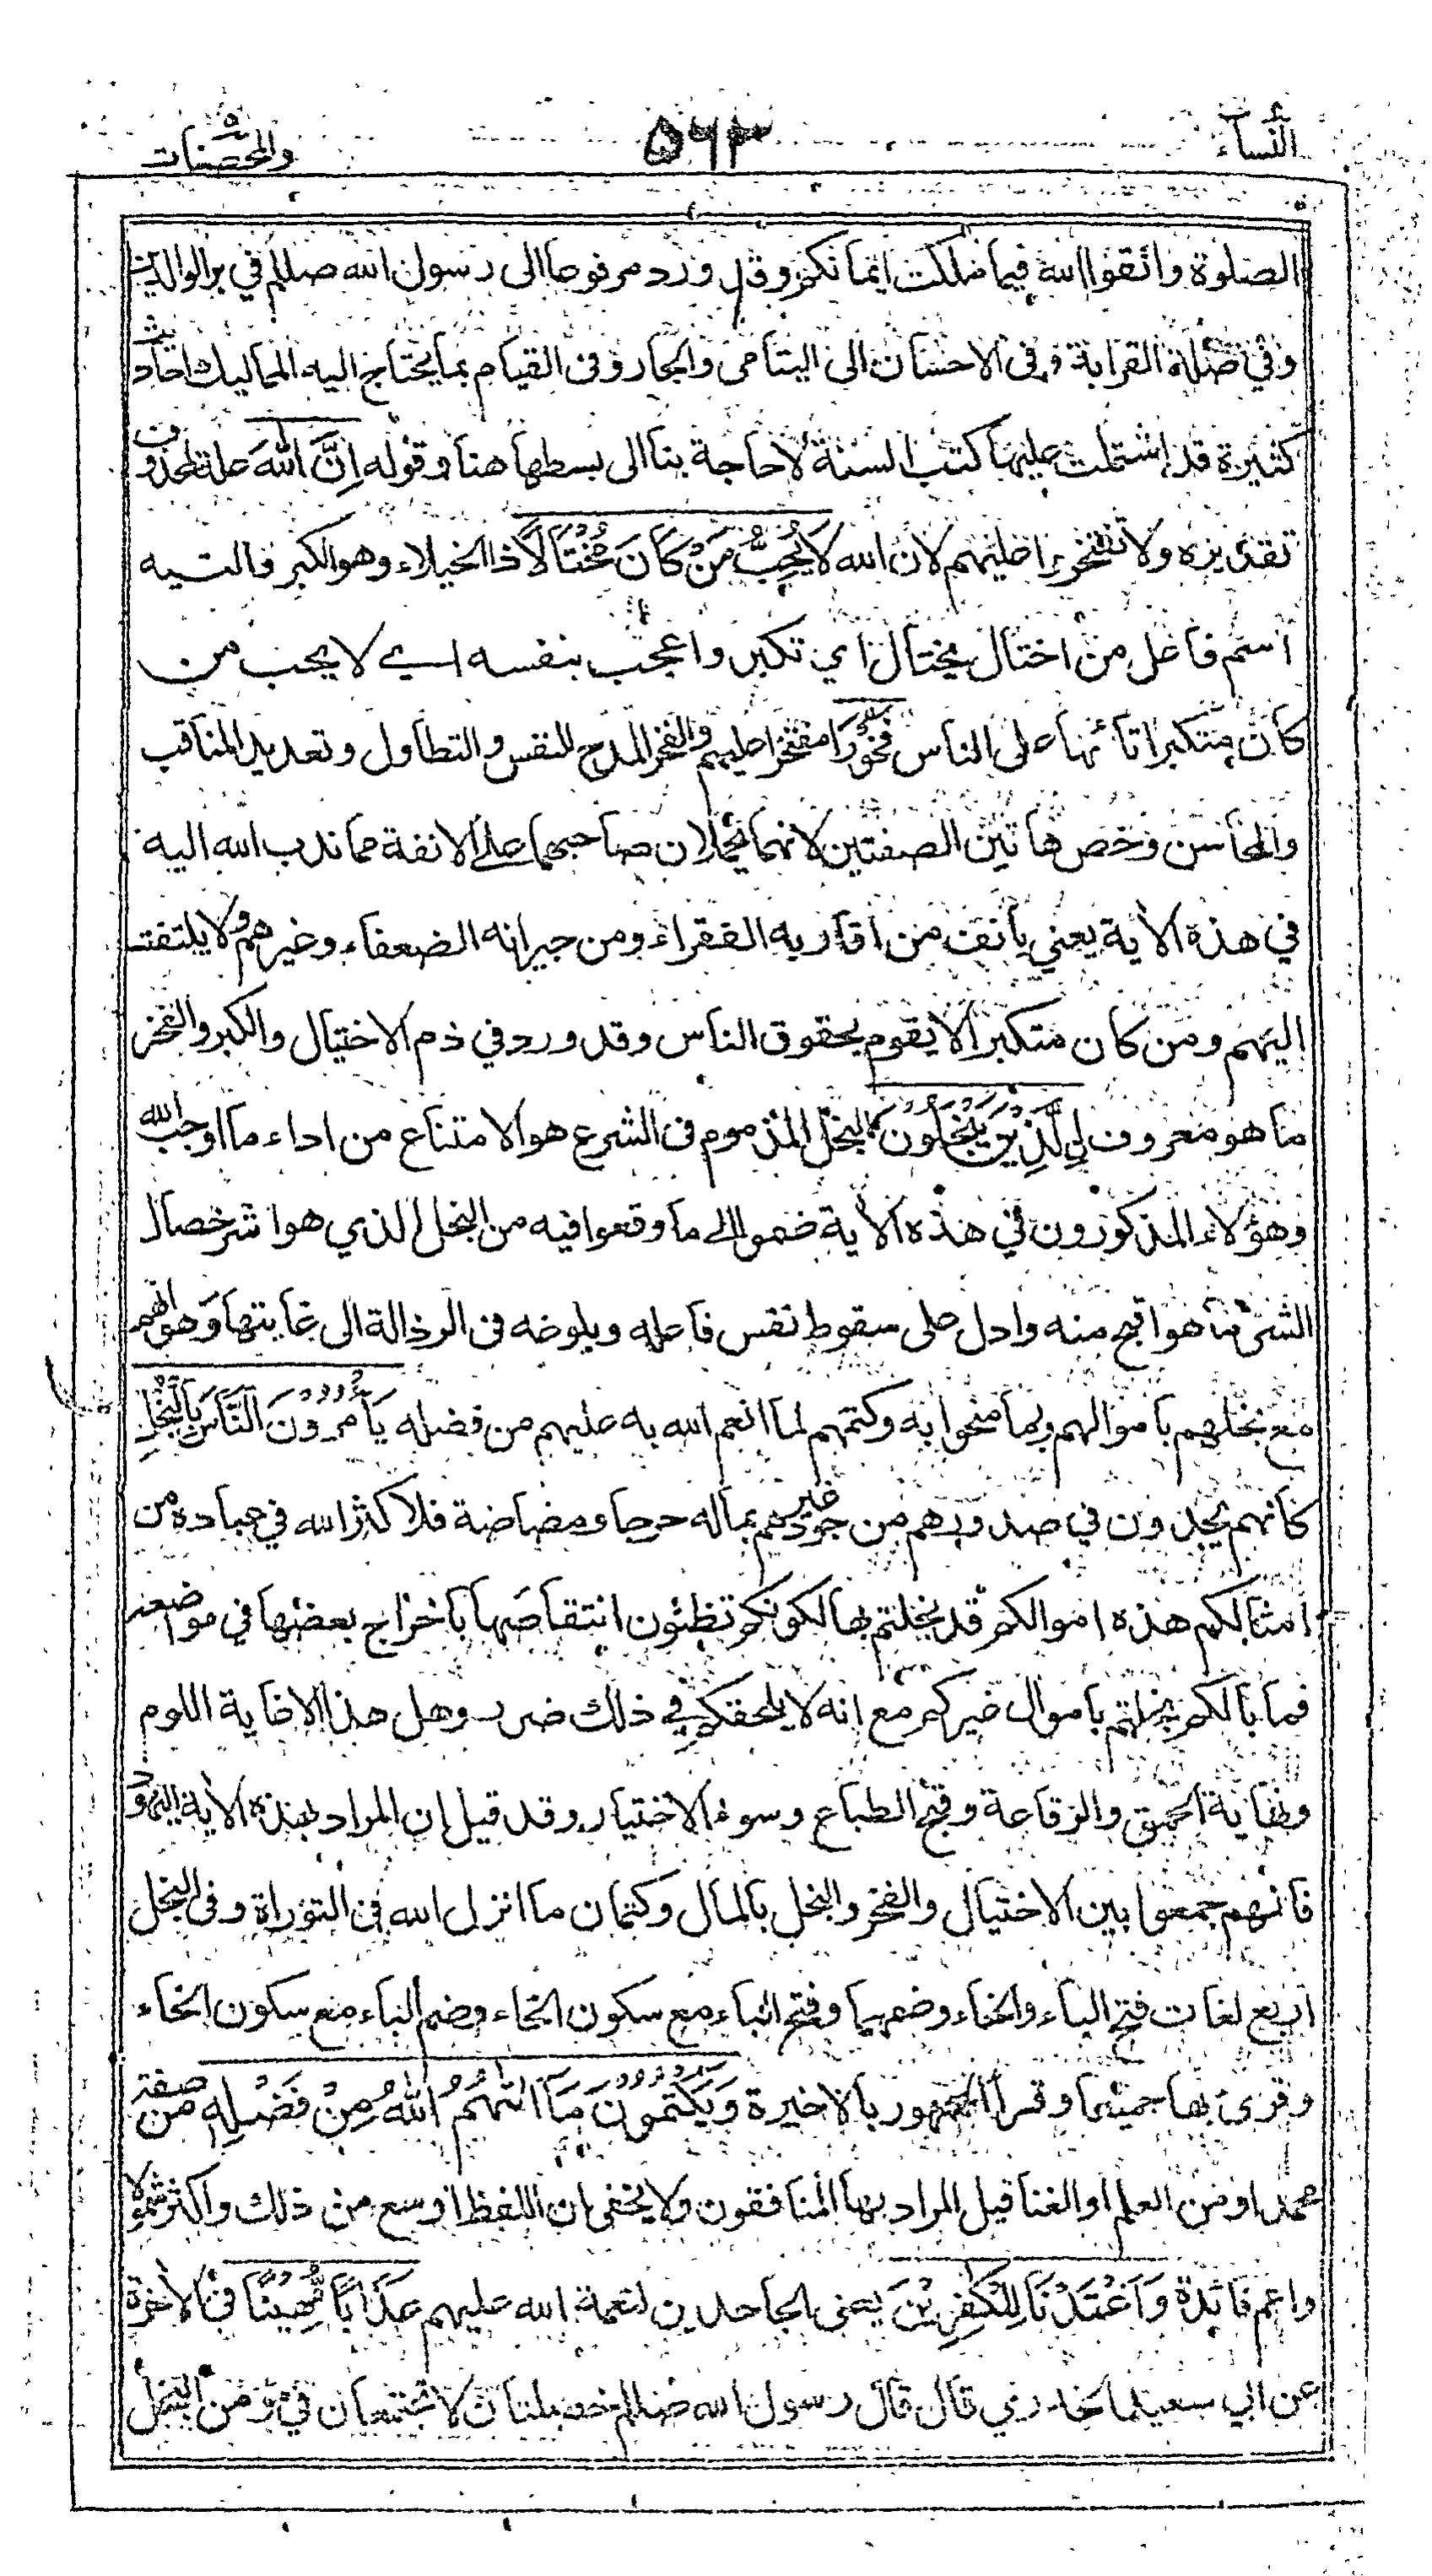 النساء ٤
٥٦٣
والمحصنات ٥
الصلوة واتقوا الله فيما ملكت ايمانكم وقد ورد مرفوعا الى رسول الله صللم في بر الوالدين
وفي صلة القرابة وفى الاحسان الى اليتامى والجار وفى القيام بما يحتاج اليه المماليك احاديث
كثيرة قد اشتملت عليها كتب السنة لا حاجة بنا الى بسطها هنا وقوله اِنَّ اللّٰهَ علة لمحذوف
تقديره ولا تفتخروا عليهم لان الله لَا يُحِبُّ مَنْ كَانَ مُخْتَالًا ذا الخيلاء وهو الكبر والتيه
اسم فاعل من اختال يختال اي تكبر واعجب بنفسه اے لا يحب من
كان متكبرا تائها على الناس فَخُوْرًا مفتخرا عليهم والفخر المدح للنفس والتطاول وتعديد المناقب
والمحاسن وخص هاتين الصفتين لانهما يحملان صاحبهما على الانفة مما ندب الله اليه
في هذه الأية يعني يأنف من اقاربه الفقراء ومن جيرانه الضعفاء وغيرهم ولا يلتفت
اليهم ومن كان متكبرا لا يقوم بحقوق الناس وقد ورد في ذم الاختيال والكبر والفخر
ما هو معروف الَّذِيْنَ يَبْخَلُوْنَ البخل المذموم فى الشرع هو الامتناع من اداء ما اوجب الله
وهؤلاء المذكورون في هذه الأية ضموا الى ما وقعوا فيه من البخل الذي هو اشر خصال
الشر ما هو اقبح منه وادل على سقوط نفس فاعله وبلوغه فى الرذالة الى غايتها وهو انهم
مع بخلهم باموالهم وبما منحوا به وكتمهم لما انعم الله به عليهم من فضله يَأْمُرُوْنَ النَّاسَ بِالْبُخْلِ
كانهم يجدون في صدورهم من جود غيرهم بماله حرجا ومضاضة فلا كثر الله في عباده من
امثالكم هذه اموالكم قد بخلتم بها لكونكم تظنون انتقاصها باخراج بعضها في مواضعه
فما بالكم بخلتم باموال غيركم مع انه لا يلحقكم في ذلك ضرر وهل هذا الا غاية اللوم
ونهاية الحمق والرقاعة وقبح الطباع وسوء الاختيار وقد قيل ان المراد بهذه الأية اليهود
فانهم جمعوا بين الاختيال والفخر والبخل بالمال وكتمان ما انزل الله فى التوراة وفى البخل
اربع لغات فتح الباء والخاء وضمهما وفتح الباء مع سكون الخاء وضم الباء مع سكون الخاء
وقرئ بها جميعا وقرأ الجمهور بالاخيرة وَيَكْتُمُوْنَ مَاۤ اٰتٰىهُمُ اللّٰهُ مِنْ فَضْلِهٖ من صفة
محمد او من العلم او الغنا قيل المراد بها المنافقون ولا يخفى ان اللفظ اوسع من ذلك واكثر شمولا
واعم فائدة وَاَعْتَدْنَا لِلْكٰفِرِيْنَ يعنى الجاحدين لنعمة الله عليهم عَذَابًا مُّهِيْنًا في الأخرة
عن ابي سعيد الخدري قال قال رسول الله صللم خصلتان لا تجتمعان في مؤمن البخل